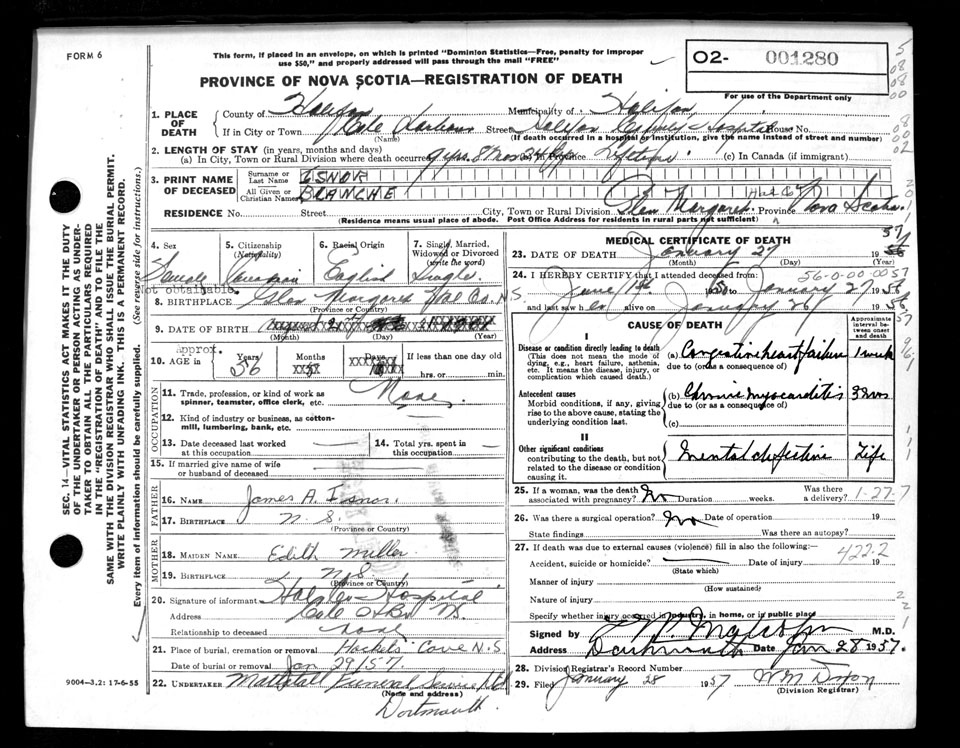 FORM 6
This form, if placed in an envelope, on which is printed "Dominion Statistics—Free, penalty for improper
use $50," and properly addressed will pass through the mail "FREE"
O2- 001280
PROVINCE OF NOVA SCOTIA—REGISTRATION OF DEATH
For use of the Department only
1. PLACE OF DEATH
County of Halifax Municipality of Halifax
If in City or Town Cole Harbour Street Halifax County Hospital House No.
(Name) (If death occurred in a hospital or institution, give the name instead of street and number)
2. LENGTH OF STAY (in years, months and days)
(a) In City, Town or Rural Division where death occurred 9 yrs. 8 Mos 24 (b) In Province Lifetime (c) In Canada (if immigrant)
3. PRINT NAME OF DECEASED
Surname or Last Name ISNOR
All Given or Christian Names BLANCHE
RESIDENCE No. Street City, Town or Rural Division Glen Margaret Hal Co Province Nova Scotia
(Residence means usual place of abode. Post Office Address for residents in rural parts not sufficient)
4. Sex Female
5. Citizenship (Nationality) Canadian
6. Racial Origin English
7. Single, Married, Widowed or Divorced (write the word) Single
Not obtainable.
8. BIRTHPLACE Glen Margaret Hal Co. N.S.
(Province or Country)
9. DATE OF BIRTH
(Month) (Day) (Year)
10. AGE in approx. Years 56 Months Days If less than one day old
hrs. or min.
OCCUPATION
11. Trade, profession, or kind of work as spinner, teamster, office clerk, etc. None
12. Kind of industry or business, as cotton-mill, lumbering, bank, etc.
13. Date deceased last worked at this occupation
14. Total yrs. spent in this occupation
15. If married give name of wife or husband of deceased
FATHER
16. NAME James A. Isnor
17. BIRTHPLACE N.S.
(Province or Country)
MOTHER
18. MAIDEN NAME Edith Miller
19. BIRTHPLACE N.S.
(Province or Country)
20. Signature of informant Halifax Hospital
Address Cole Hbr N.S.
Relationship to deceased none
21. Place of burial, cremation or removal Hackets Cove N.S.
Date of burial or removal Jan 29/57.
22. UNDERTAKER Mattatall Funeral Service Ltd
(Name and address)
Dartmouth
9004—3.2: 17-6-55
MEDICAL CERTIFICATE OF DEATH
23. DATE OF DEATH January 27 19 57
(Month) (Day) (Year)
24. I HEREBY CERTIFY that I attended deceased from:
56-0-00-00
June 1st 1950 to January 27 19 57
and last saw her alive on January 26 19 57
CAUSE OF DEATH
Approximate interval between onset and death
I
Disease or condition directly leading to death
(This does not mean the mode of dying, e.g., heart failure, asthenia, etc. It means the disease, injury, or complication which caused death.)
(a) Congestive heart failure 1 week
due to (or as a consequence of)
Antecedent causes
Morbid conditions, if any, giving rise to the above cause, stating the underlying condition last.
(b) Chronic myocarditis
due to (or as a consequence of)
(c)
II
Other significant conditions
contributing to the death, but not related to the disease or condition causing it.
Mental defective Life
25. If a woman, was the death associated with pregnancy? No Duration weeks. Was there a delivery?
1-27-7
26. Was there a surgical operation? No Date of operation 19
State findings Was there an autopsy?
27. If death was due to external causes (violence) fill in also the following:—
422-2
Accident, suicide or homicide? Date of injury 19
(State which)
Manner of injury
(How sustained)
Nature of injury
Specify whether injury occurred in industry, in home, or in public place
Signed by M.D.
Address Dartmouth Date Jan 28 1957.
28. Division Registrar's Record Number
29. Filed January 28 1957 W M
(Division Registrar)
SEC. 14—VITAL STATISTICS ACT MAKES IT THE DUTY
OF THE UNDERTAKER OR PERSON ACTING AS UNDER-
TAKER TO OBTAIN ALL THE PARTICULARS REQUIRED
IN THE "REGISTRATION OF DEATH" AND TO FILE THE
SAME WITH THE DIVISION REGISTRAR WHO SHALL ISSUE THE BURIAL PERMIT.
WRITE PLAINLY WITH UNFADING INK. THIS IS A PERMANENT RECORD.
Every item of information should be carefully supplied. (See reverse side for instructions.)